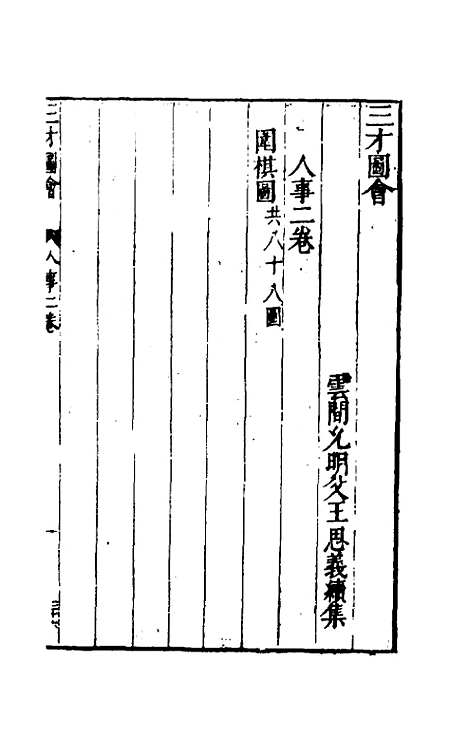 三才圖會
雲間允明父王思義續集
人事二卷
圍棋圖共八十八圖
三才圖會
人事二卷
一